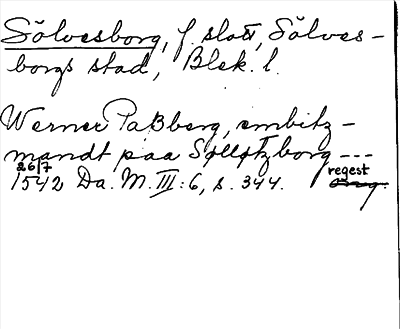 Sölvesborg, f. slott, Sölves-
borgs stad, Blek. l.
Werner Paßberg, embitz-
mandt paa SøllItzborg ---
26/7
1542 Da. M. III: 6, s. 344. regest